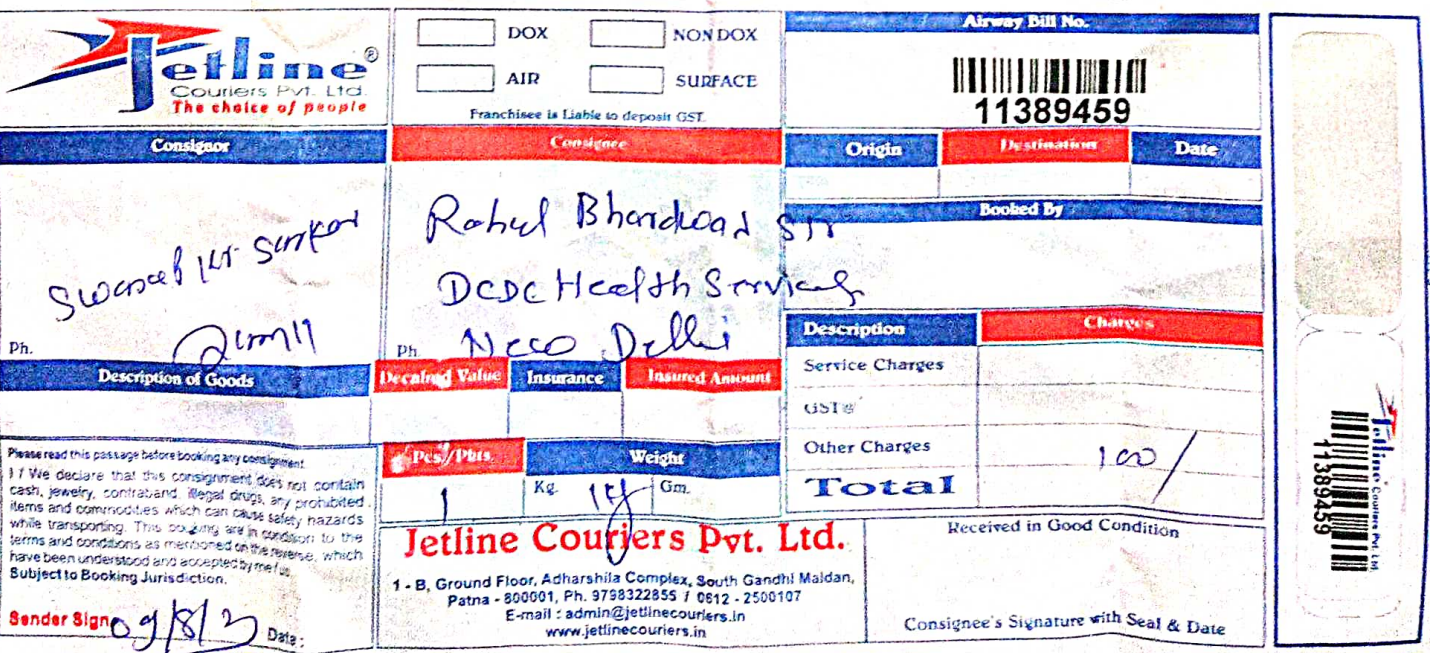 Jetline®
Couriers Pvt. Ltd.
The choice of people
DOX
NON DOX
AIR
SURFACE
Franchisee is Liable to deposit GST.
Airway Bill No.
11389459
Consignor
Consignee
Origin
Destination
Date
Rahul Bhardwaj Sir
DCDC Health Services
New Delhi
Ph.
Ph.
Booked By
Description
Charges
Service Charges
GST@
Other Charges
100/
Total
Description of Goods
Decalred Value
Insurance
Insured Amount
Pcs./Pkts.
Weight
1
Kg.
Gm.
Please read this passage before booking any consignment.
I / We declare that this consignment does not contain
cash, jewelry, contraband, illegal drugs, any prohibited
items and commodities which can cause safety hazards
while transporting. This booking are in condition to the
terms and conditions as mentioned on the reverse, which
have been understood and accepted by me / us
Subject to Booking Jurisdiction.
Sender Sign
Date :
Jetline Couriers Pvt. Ltd.
1 - B, Ground Floor, Adharshila Complex, South Gandhi Maidan,
Patna - 800001, Ph. 9798322855 / 0612 - 2500107
E-mail : admin@jetlinecouriers.in
www.jetlinecouriers.in
Received in Good Condition
Consignee's Signature with Seal & Date
Jetline Couriers Pvt. Ltd.
11389459